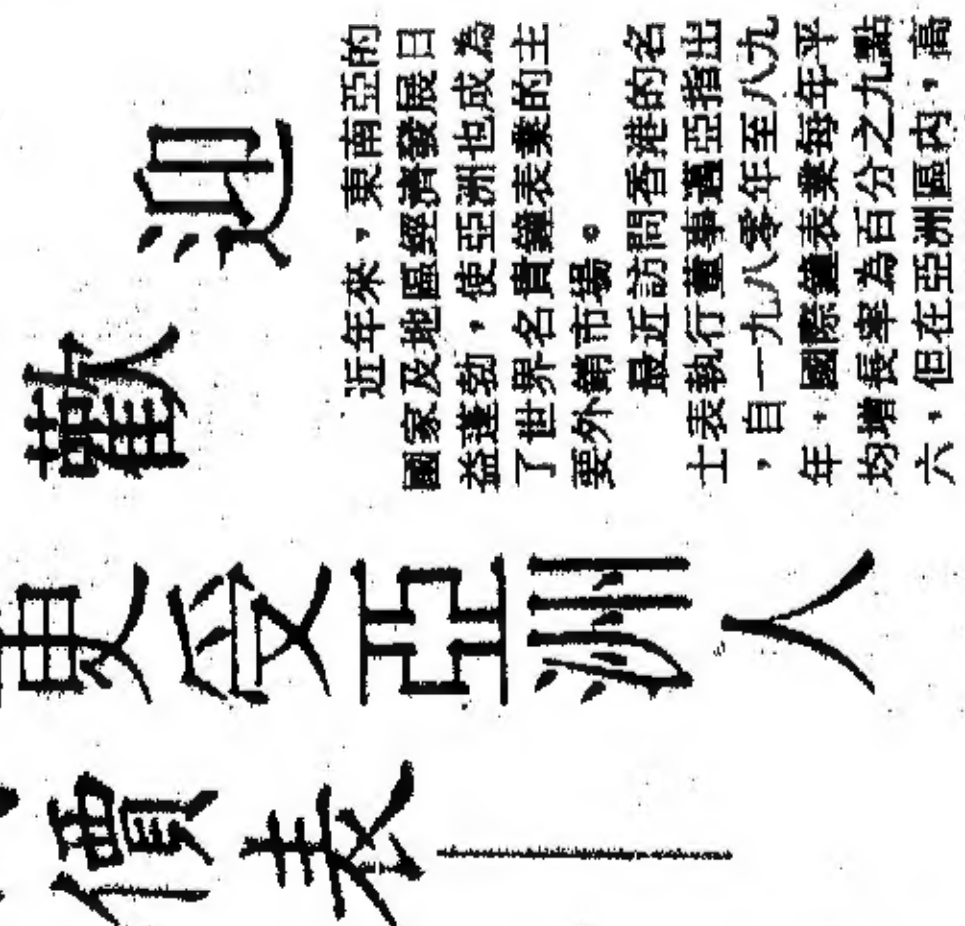 價表——
更受亞洲人
歡迎
近年來，東南亞的
國家及地區經濟發展日
益蓬勃，使亞洲也成為
了世界名貴鐘表業的主
要外銷市場。
最近訪問香港的名
士表執行董事邁亞指出
，自一九八零年至八九
年，國際鐘表業每年平
均增長率為百分之九點
六，但在亞洲區內，高